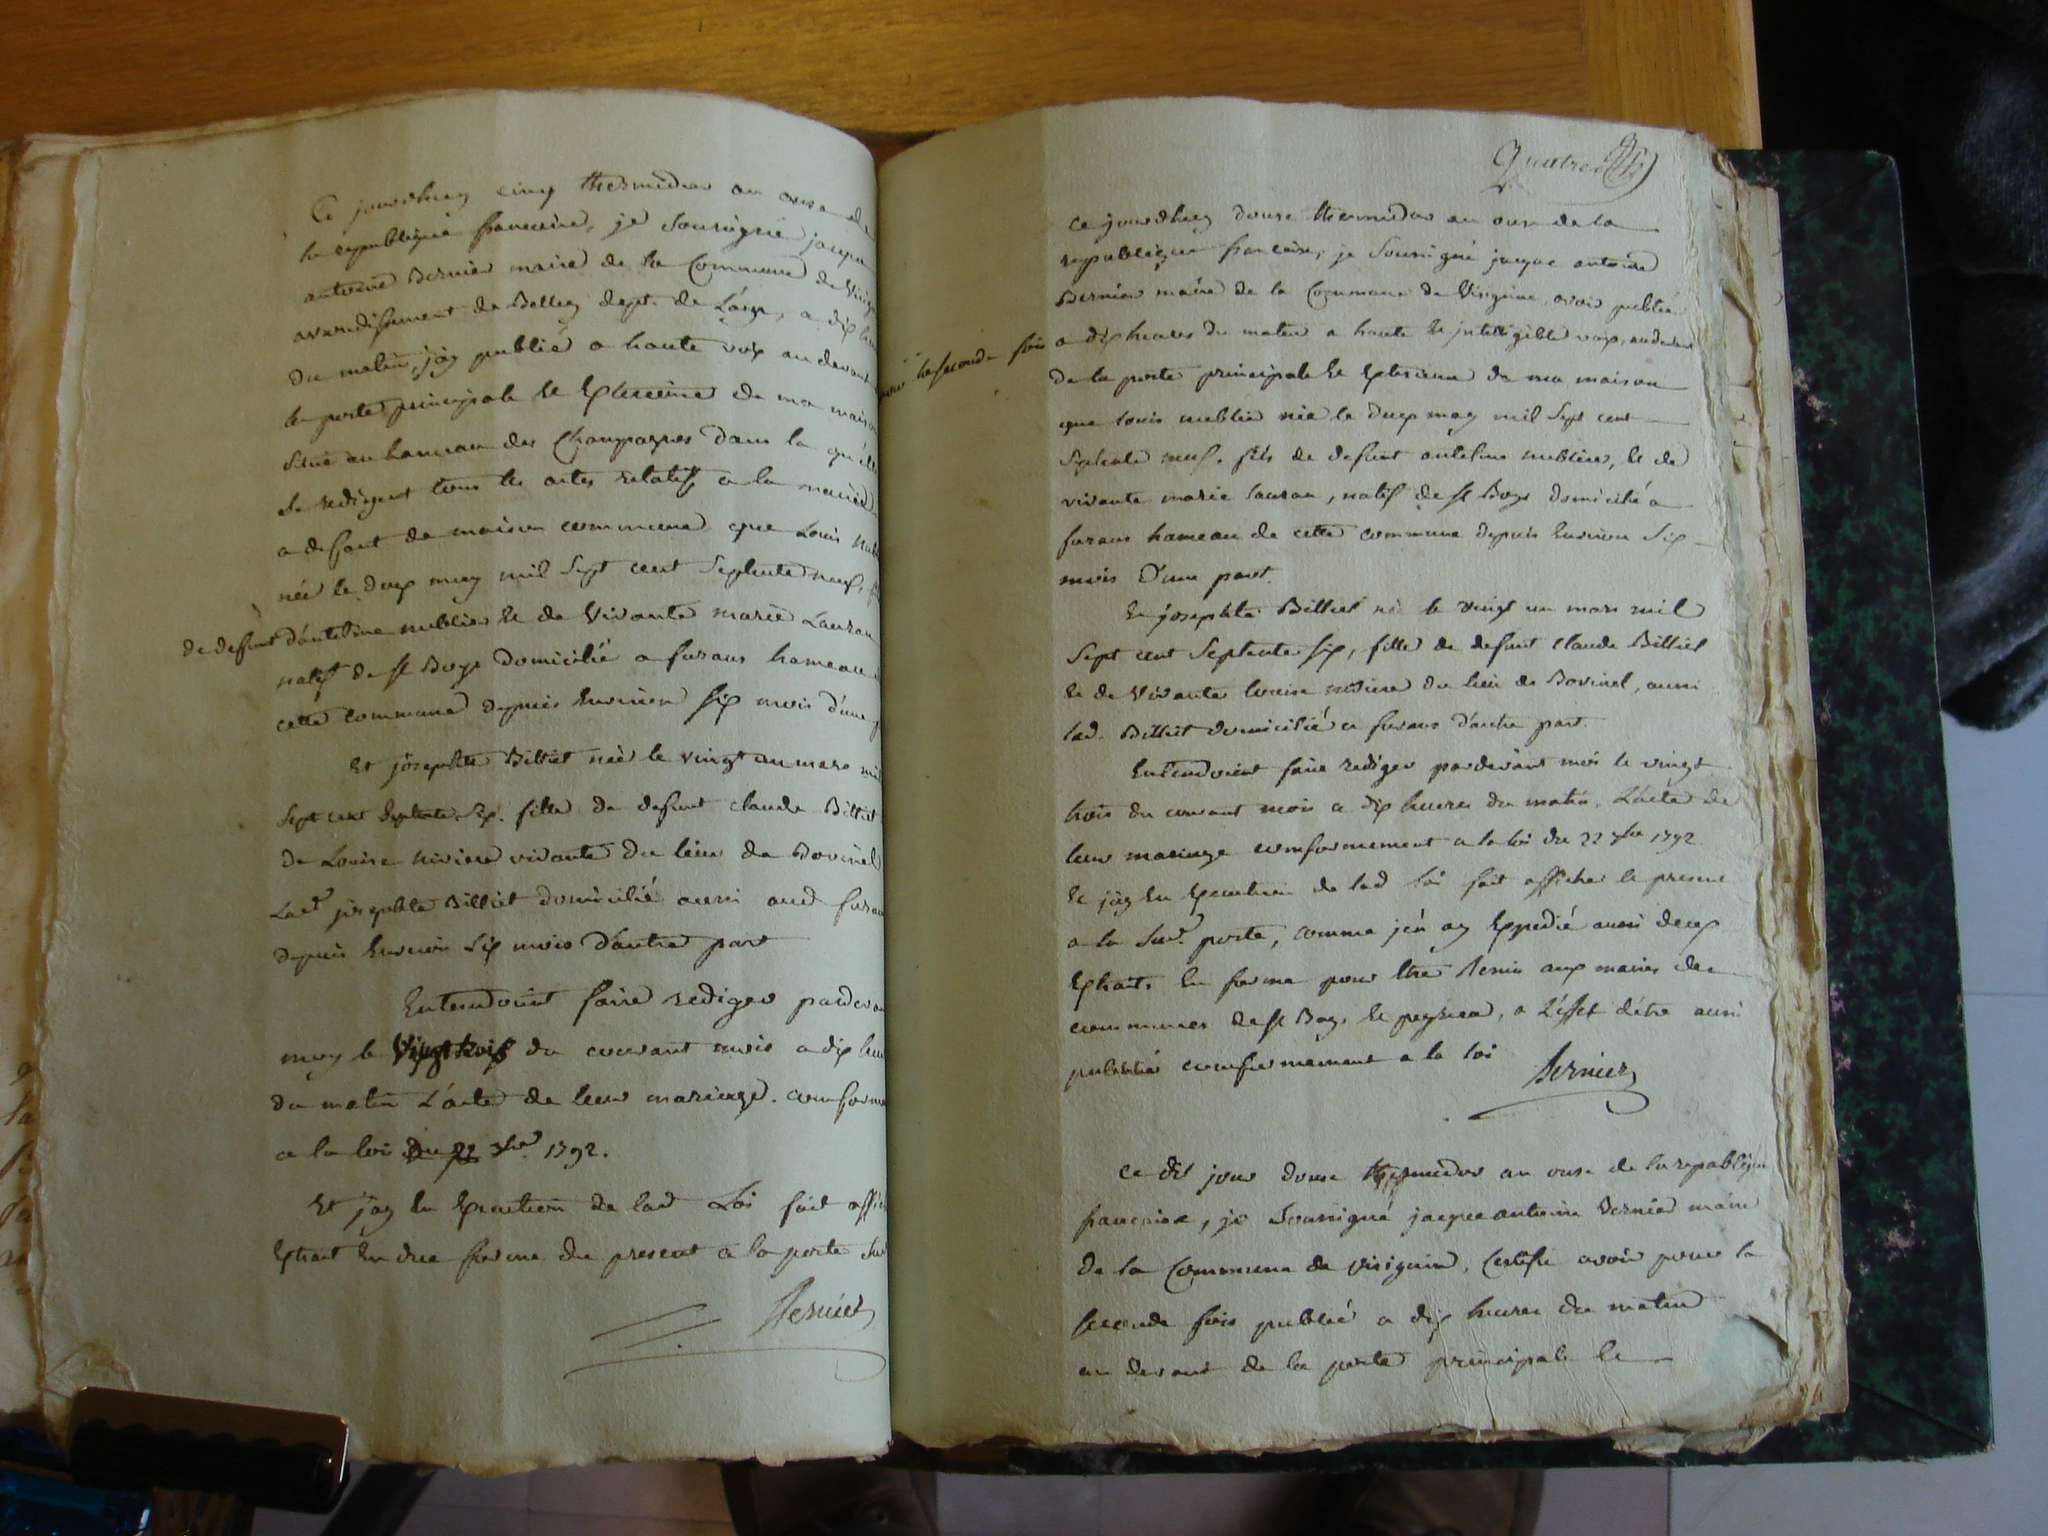 Ce jourdhuy cinq thermidor an onze de
la republique francaise, je soussigné jacque
antoine Bernier maire de la Commune de Virig
arrondissement de Belley dept. de L'ain, a dix heu
du matin, j'ay publié a haute voix au devant
la porte principale et Exterieure de ma maison
situé au hameau des Champagnes dans la qu'elle
se redigent tous les actes relatifs a la mairie
a defaut de maison commune que Louis nub
née le deux may mil sept cent Septente neuf,
de defunt d'antelme nublier et de vivante marie Lauran
natif de st Boys domicilié a furans hameau
cette commune depuis Environ six mois d'une
Et josephte Billiet née le vingt un mars mil
sept cent Septente six. fille de defunt claude Billiet
de Louise riviere vivante du lieu de Bovinel
Lad.e josephte Billiet domicilié aussi aud furan
depuis Environ six mois d'autre part
Entendoint faire rediger pardevan
moy le vingt trois du courant mois a dix heu
du matin L'acte de leur mariage. conforme
a la loi du 22 7bre 1792.
Et j'ay En Execution de lad Loi fait affic
Extrait En due forme du present a la porte sus
Bernier
Quatre
ce jourdhuy douse thermidor an onse de la
republique francaise, je soussigné jacque antoine
Bernier maire de la Commune de Virignin, avoir publié
pour la seconde fois a dix heures du matin a haute et jntelligible voix, audevant
de la porte principale et Exterieure de ma maison
que louis nublier née le deux may mil sept cent
septente neuf. fils de defunt antelme nublier, et de
vivante marie lauran, natif de st Boys domicilié a
furans hameau de cette commune depuis Environ six
mois d'une part.
Et josephte Billiet né le vingt un mars mil
sept cent septente six, fille de defunt claude Billiet
et de vivante louise riviere du lieu de Bovinel, aussi
lad. Billiet domicilié a furans d'autre part.
Entendoient faire rediger pardevant moi le vingt
trois du courant mois a dix heures du matin. L'acte de
leur mariage conformement a la loi du 22 7bre 1792
et j'ay En Execution de lad loi fait afficher le present
a la susd. porte, comme j'en ay Expedié aussi deux
Extraits En forme pour être remis aux maires des
communes de st Boys et peyrieu, a L'effet d'être aussi
publiée conformement a la loi
Bernier
ce dit jour douse thermidor an onse de la republique
francaise, je soussigné jacque antoine Bernier maire
de la Commune de virignin, certifie avoir pour la
seconde fois publié a dix heures du matin
au devant de la porte principale et